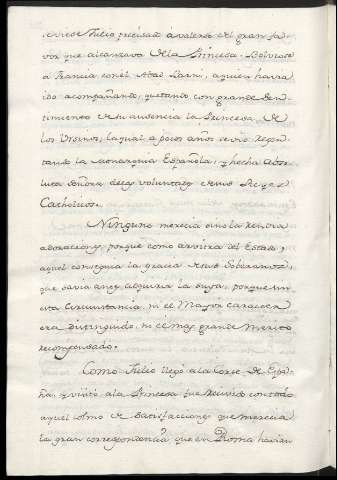 se vio Julio precisado a valerse del gran fa-
vor que alcanzava de la Princesa. Bolviose
a Francia con el Abad Larni, a quien havia
ido acompañando, quedando con grande sen-
timiento de su ausencia la Princesa de
los Ursinos, la qual a pocos años se vio Regen-
tando la Monarquia Española, y hecha abso-
luta señora de las voluntades de sus Reyes
Catholicos.
Ninguno merecia sino la rendia
adoraciones, porque como arvitra del Estado,
aquel conseguia la gracia de sus Soberanos,
que savia antes adquirir la suya, porque sin
esta circunstancia, ni el Mayor caracter
era distinguido, ni el mas grande merito
recompensado.
Como Julio llegó a la Corte de Espa-
ña, y visitó a la Princesa fue recivido con todo
aquel colmo de satisfacciones que merecia
la gran correspondencia, que en Roma havian